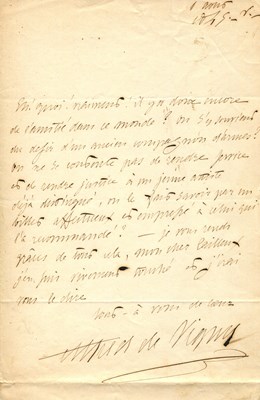 1 août
1845
Eh! quoi! vraiment! il y a donc encore
de l'amitié dans ce monde? on s'y souvient
du désir d'un ancien compagnon d'armes?
on ne se contente pas de rendre
et de rendre justice à un jeune artiste
déjà distingué, on le fait savoir par un
billet affectueux et empressé à celui qui
l'a recommandé? — je vous rends
grâces de tout cela, mon cher
j'en suis vivement touché et j'irai
vous le dire
tout-à vous de cœur
Alfred de Vigny